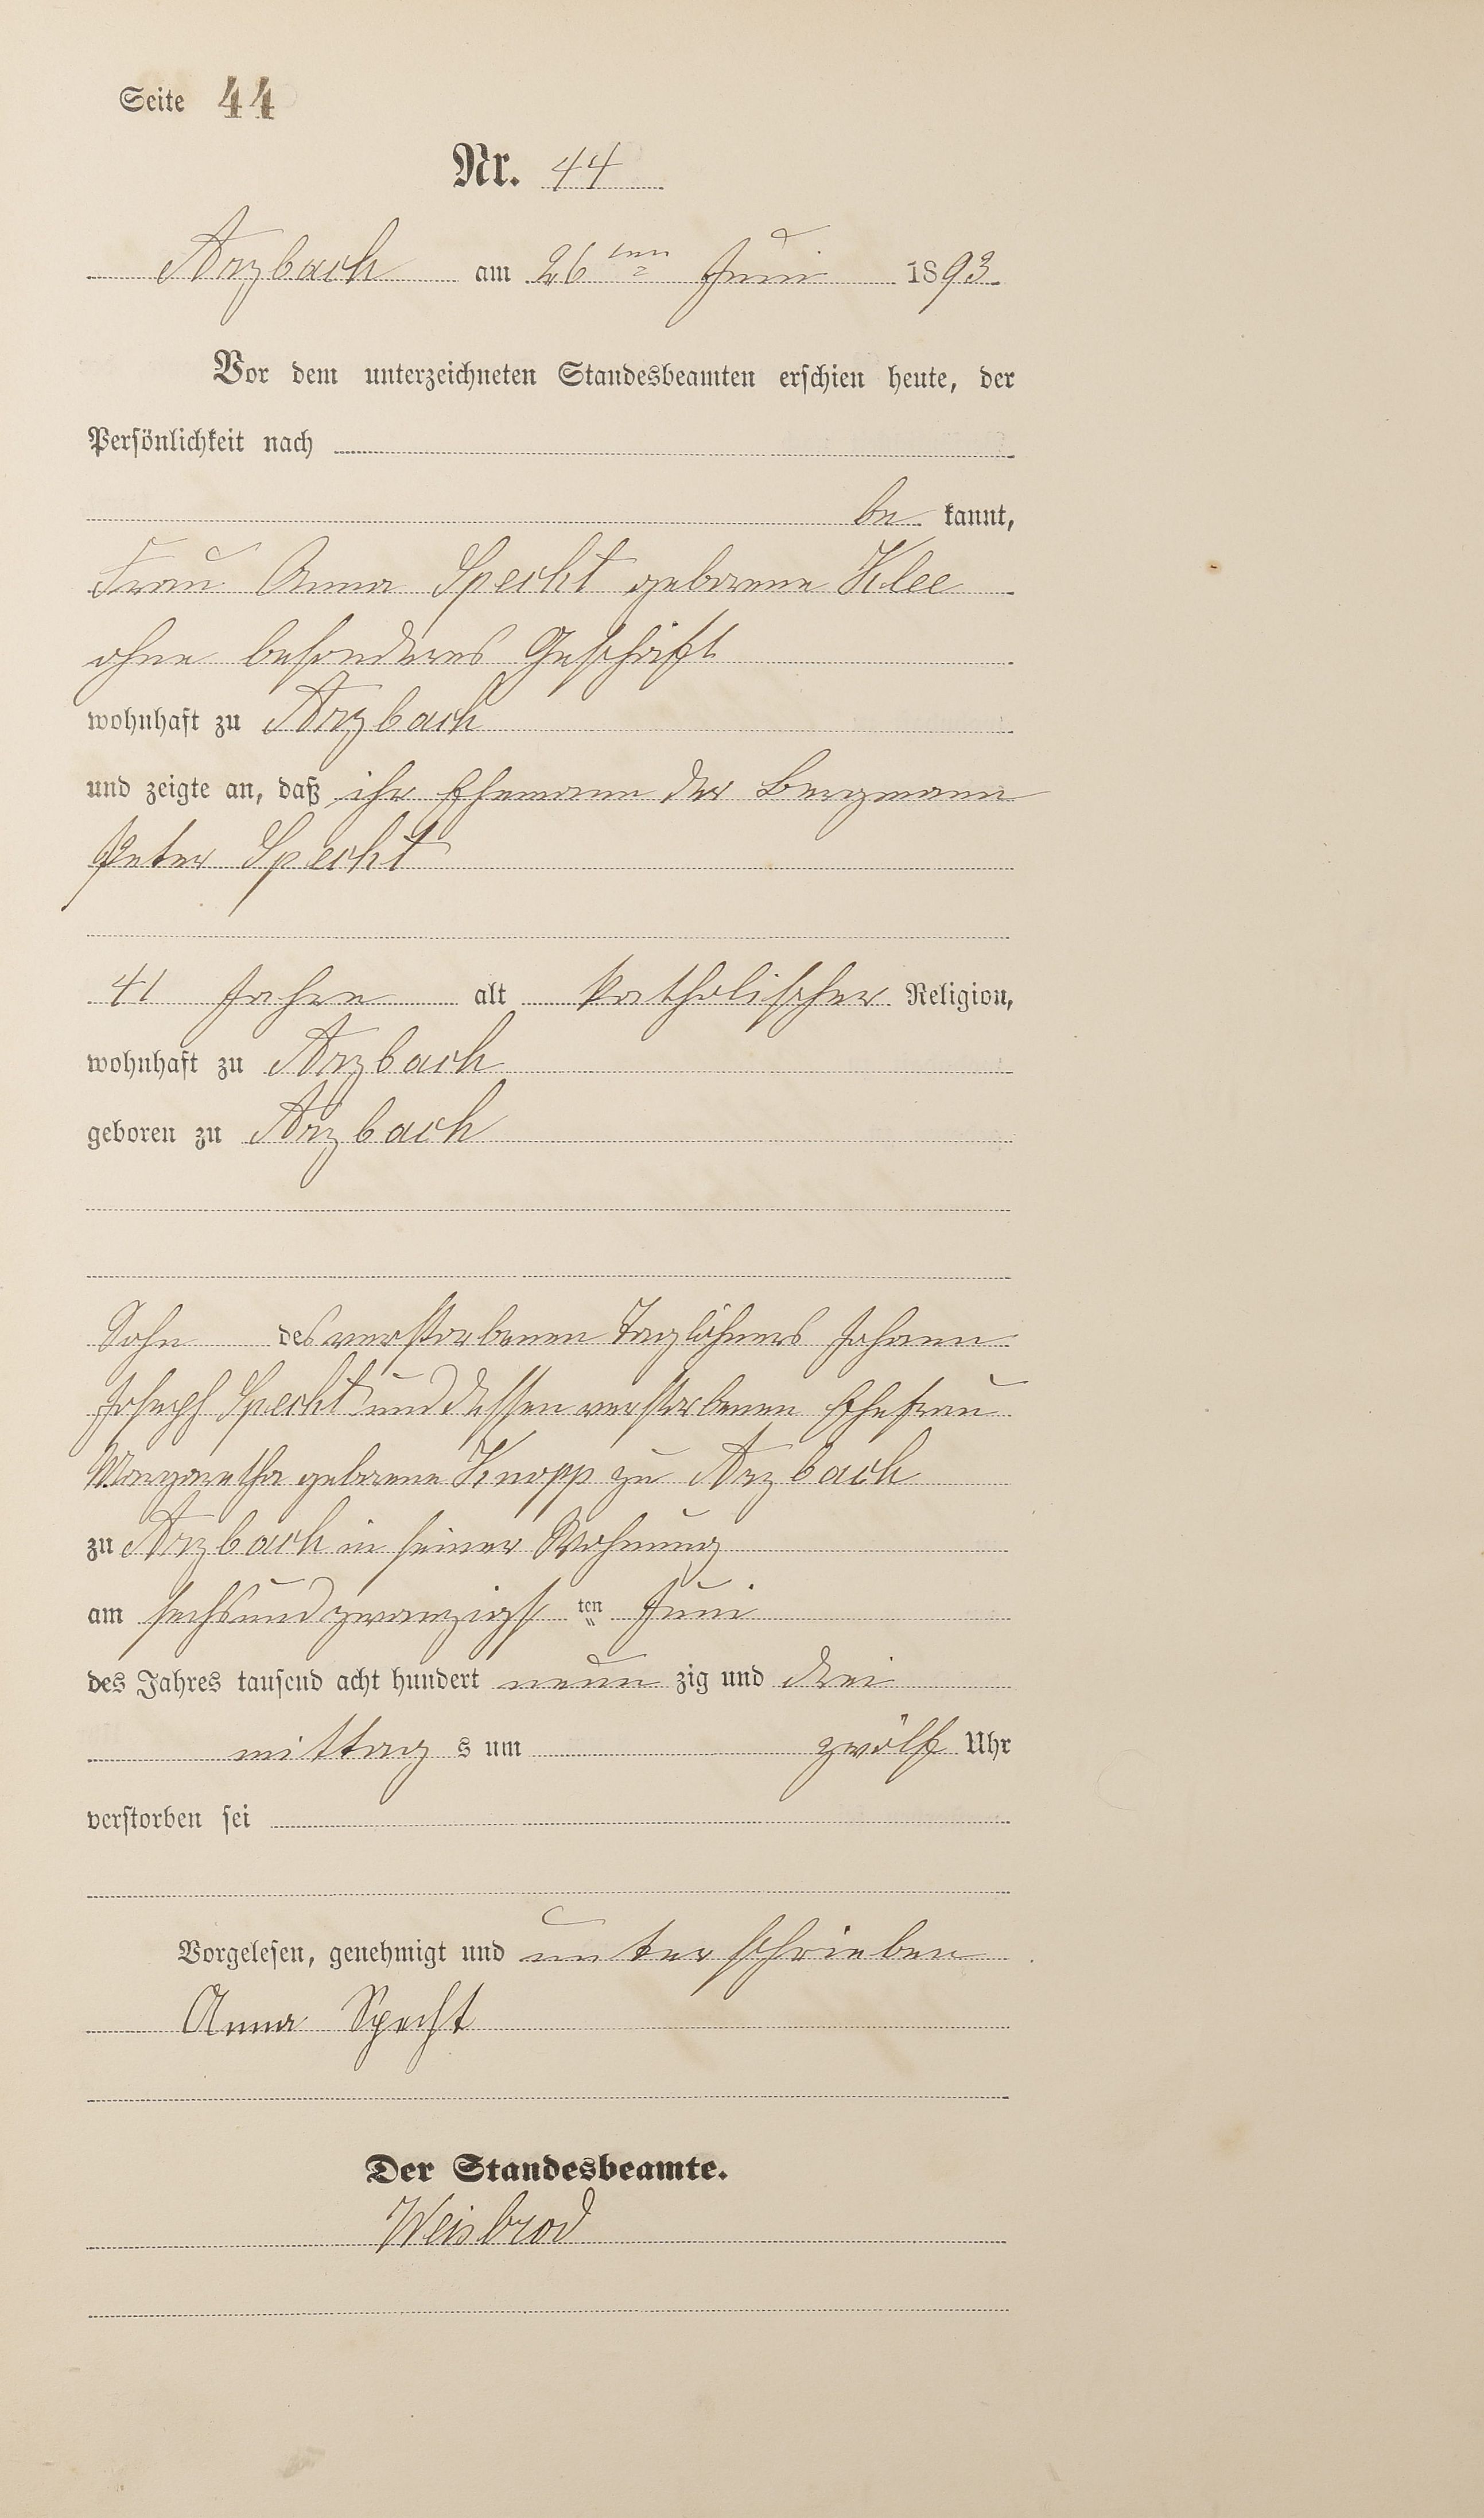 Seite 44
Nr. 44
Arzbach am 26ten Juni 1893.
Vor dem unterzeichneten Standesbeamten erschien heute, der
Persönlichkeit nach
be kannt,
Frau Anna Specht geborene Klee
ohne besonderes Geschäft
wohnhaft zu Arzbach
und zeigte an, daß ihr Ehemann der Bergmann
Peter Specht
41 Jahre alt katholischer Religion,
wohnhaft zu Arzbach
geboren zu Arzbach
Sohn des verstorbenen Taglöhners Johann
Joseph Specht und dessen verstorbenen Ehefrau
Margaretha geborene Knopp zu Arzbach
zu Arzbach in seiner Wohnung
am sechsundzwanzigsten Juni
des Jahres tausend acht hundert neun zig und drei
mittag s um zwölf Uhr
verstorben sei
Vorgelesen, genehmigt und unterschrieben
Anna Specht
Der Standesbeamte.
Weisbrod